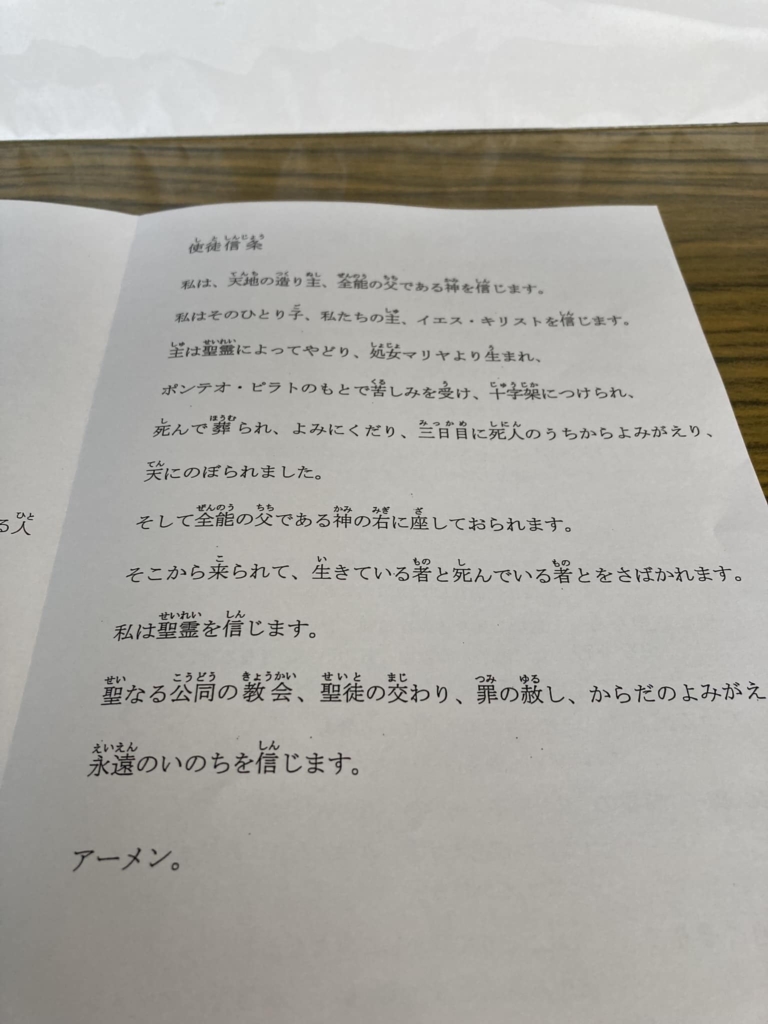 使徒信条
私は、天地の造り主、全能の父である神を信じます。
私はそのひとり子、私たちの主、イエス・キリストを信じます。
主は聖霊によってやどり、処女マリヤより生まれ、
ポンテオ・ピラトのもとで苦しみを受け、十字架につけられ、
死んで葬られ、よみにくだり、三日目に死人のうちからよみがえり、
天にのぼられました。
そして全能の父である神の右に座しておられます。
る人
そこから来られて、生きている者と死んでいる者とをさばかれます。
私は聖霊を信じます。
聖なる公同の教会、聖徒の交わり、罪の赦し、からだのよみがえ
永遠のいのちを信じます。
アーメン。